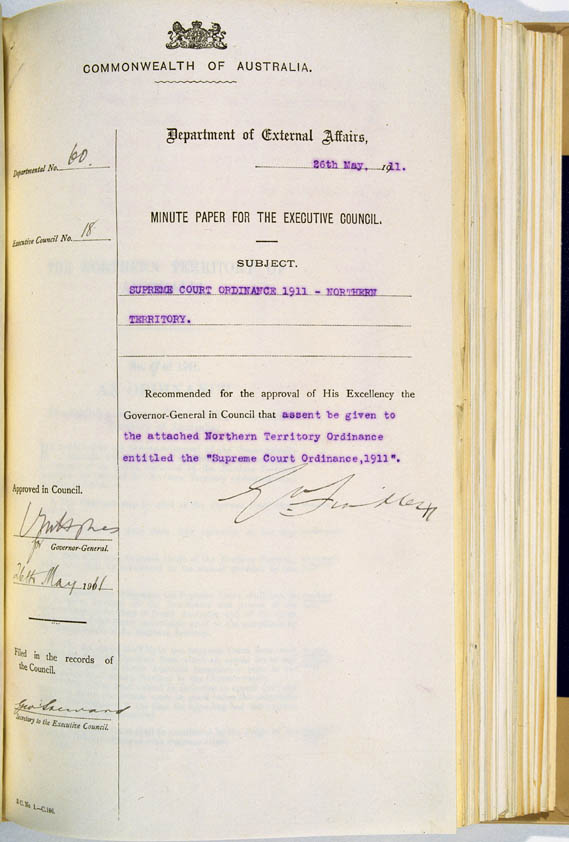 COMMONWEALTH OF AUSTRALIA.
Department of External Affairs,
26th May, 1911.
Departmental No. 60.
MINUTE PAPER FOR THE EXECUTIVE COUNCIL.
Executive Council No. 18
SUBJECT.
SUPREME COURT ORDINANCE 1911 - NORTHERN
TERRITORY.
Recommended for the approval of His Excellency the
Governor-General in Council that assent be given to
the attached Northern Territory Ordinance
entitled the "Supreme Court Ordinance,1911".
Approved in Council.
for Governor-General.
26th May 1911
Filed in the records of
the Council.
Secretary to the Executive Council.